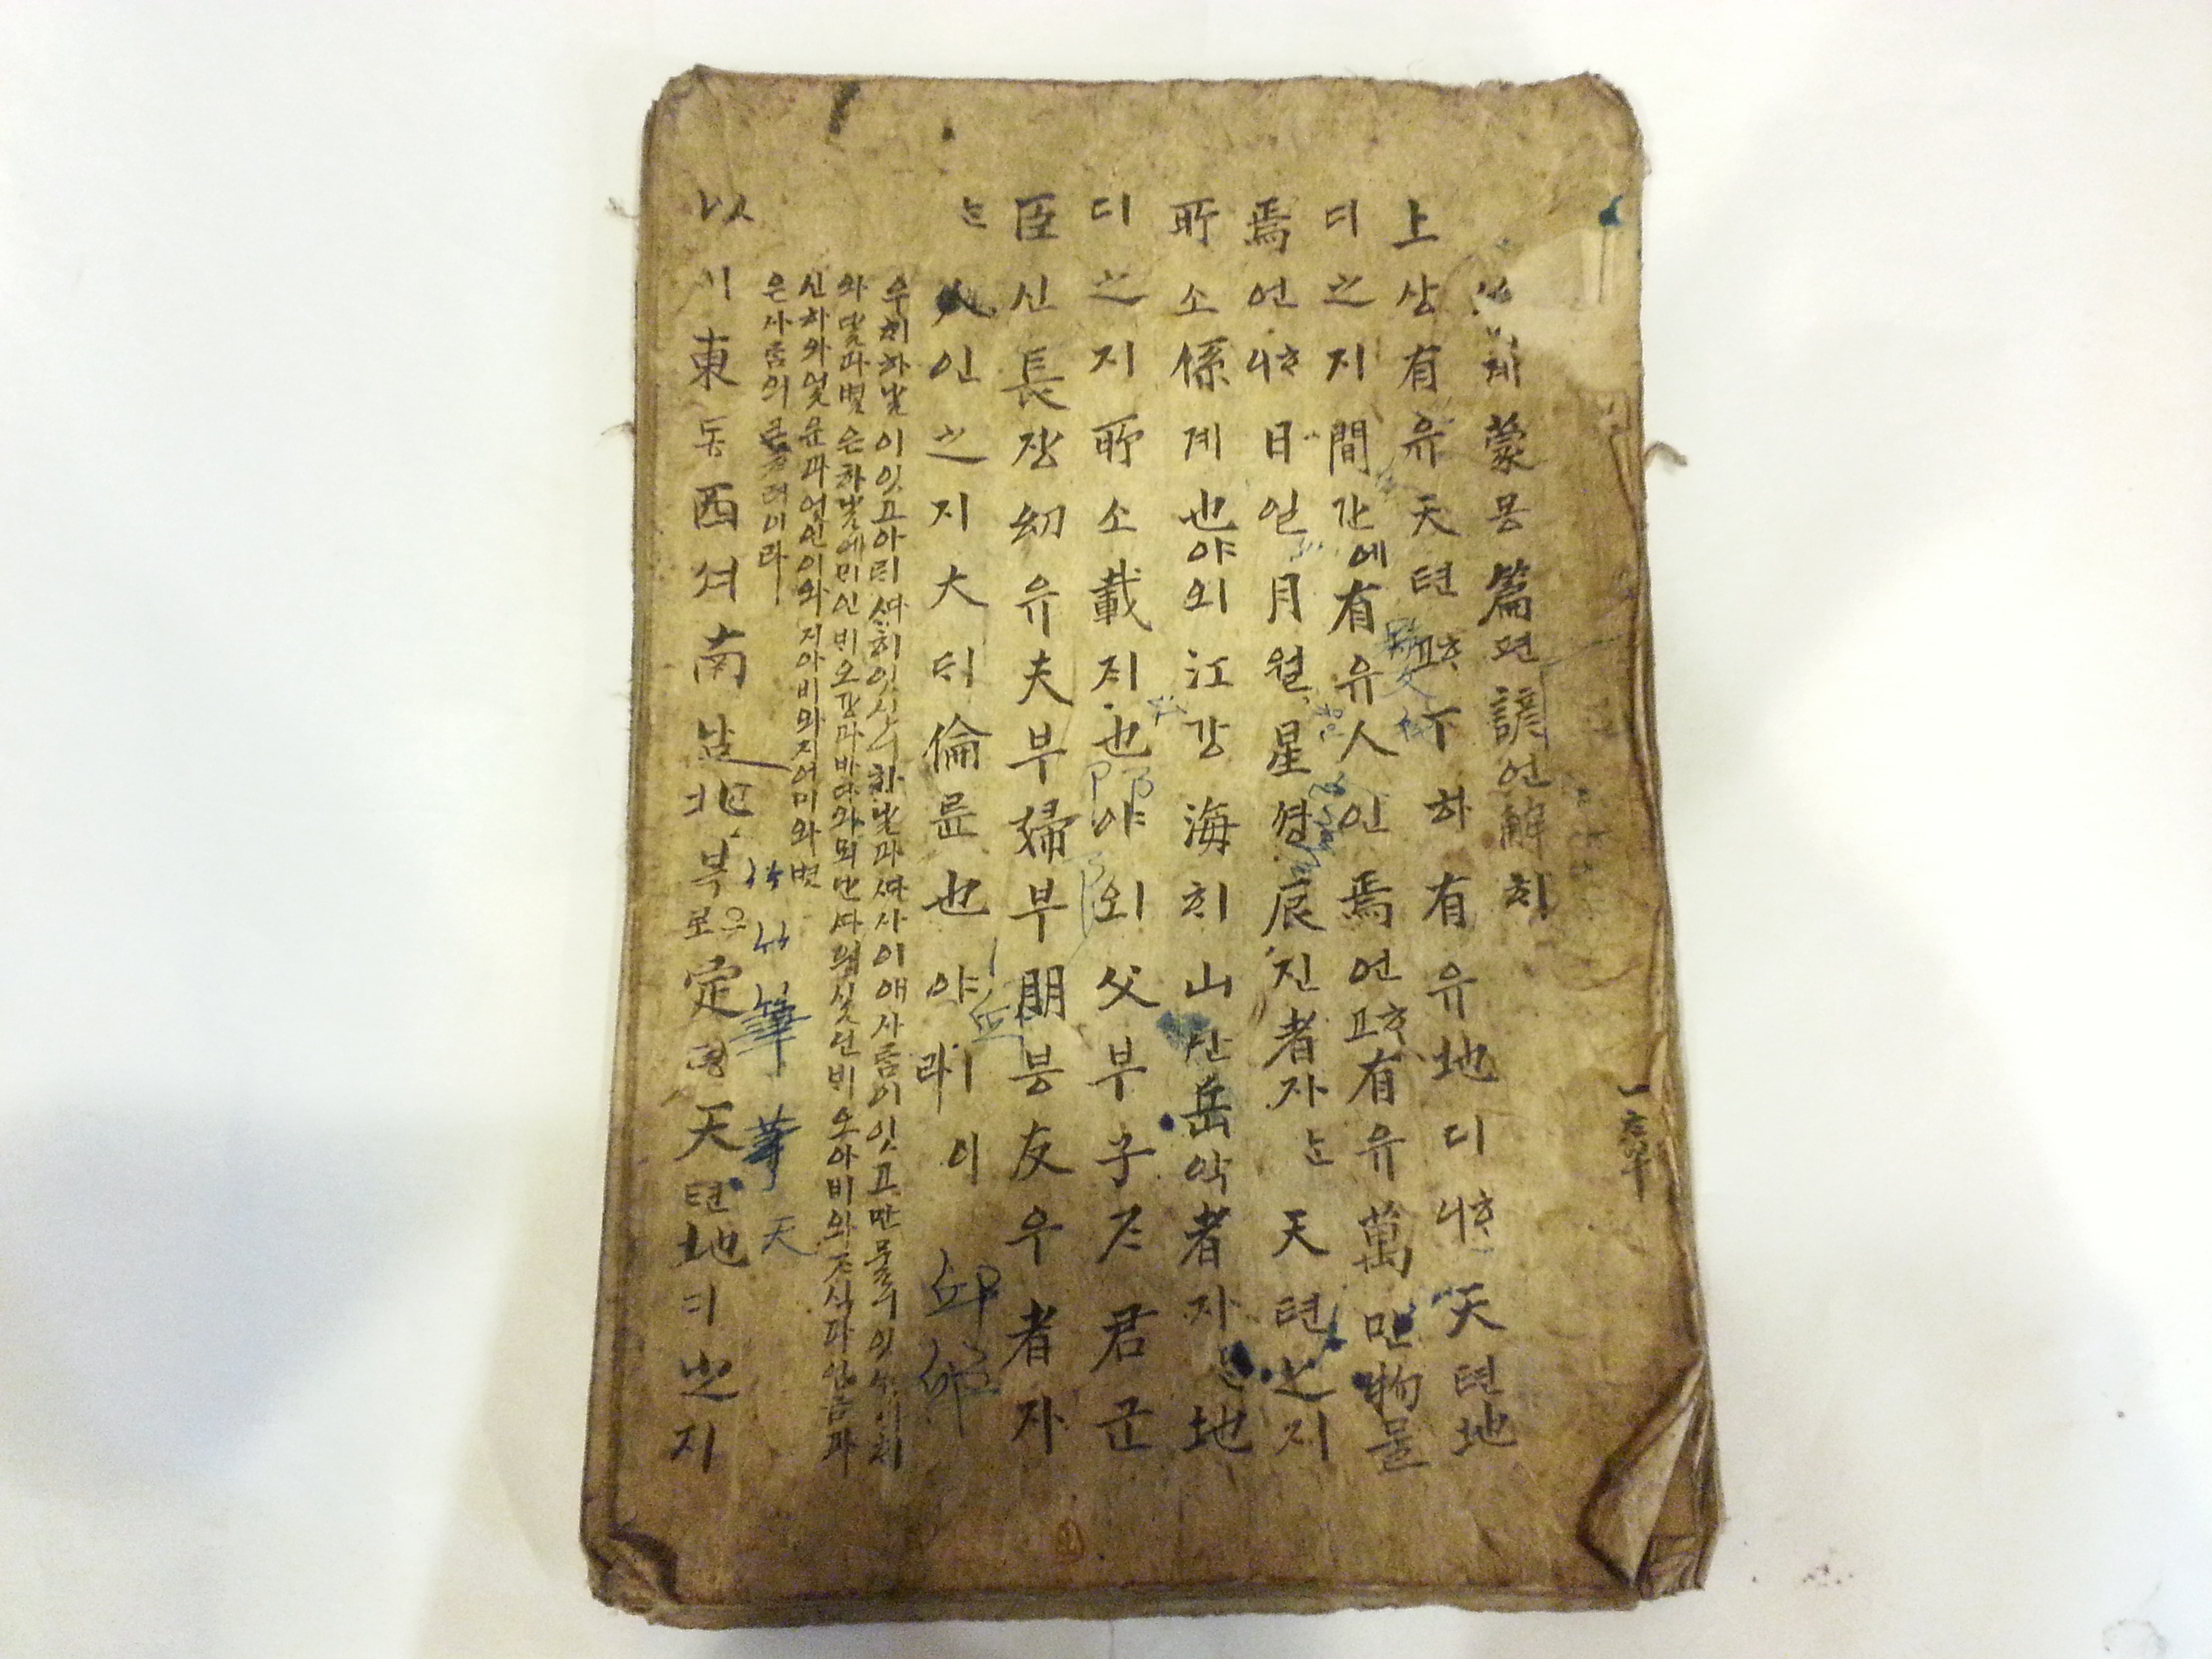 蒙몽篇편諺언解ᄒᆡ
上상有유天텬ᄒᆞ고下하有유地디ᄒᆞ니天텬地
디之지間간에有유人인焉언ᄒᆞ고有유萬만物믈
焉언ᄒᆞ니日일月월星셩辰진者쟈ᄂᆞᆫ天텬之지
所소係계也야외江강海ᄒᆡ山산岳악者쟈ᄂᆞᆫ地
디之지所소載ᄌᆡ也야외父부子ᄌᆞ君군
臣신長쟝幼유夫부婦부朋븡友우者쟈
ᄂᆞᆫ人인之지大ᄃᆡ倫륜也야라이
우히하ᄂᆞᆯ이잇고아ᄅᆡᄯᅡ히이시니하ᄂᆞᆯ과ᄯᅡ사이애사ᄅᆞᆷ이잇고만물이
와ᄃᆞᆯ과별은하ᄂᆞᆯ에ᄆᆡ인비오강과바다와뫼ᄂᆞᆫᄯᅡ희실닌비오아비와ᄌᆞ식과
신하와얼운과어린이와지아비와지어미와벗
은사ᄅᆞᆷ의큰ᄎᆞ례이라
以이東동西셔南남北북으로定뎡天텬地디之지